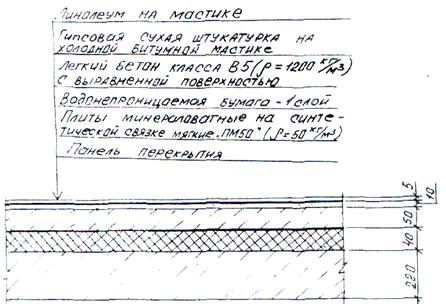 Линолеум на мастике
Гипсовая сухая штукатурка на
холодной битумной мастике
Легкий бетон класса В5 (ρ=1200 кг/м3)
с выравненной поверхностью
Водонепроницаемая бумага - 1 слой
Плиты минераловатные на синте-
тической связке мягкие „ПМ50" (ρ=50 кг/м3)
Панель перекрытия
5
10
50
40
220